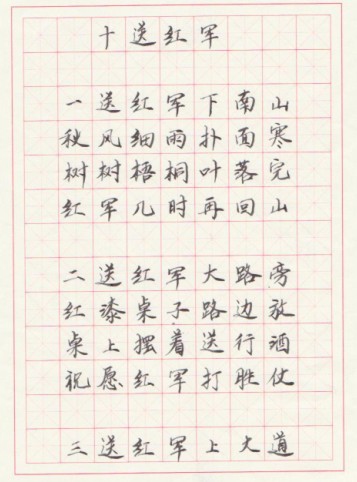 十送红军
一送红军下南山
秋风细雨扑面寒
树树梧桐叶落完
红军几时再回山
二送红军大路旁
红漆桌子路边放
桌上摆着送行酒
祝愿红军打胜仗
三送红军上大道